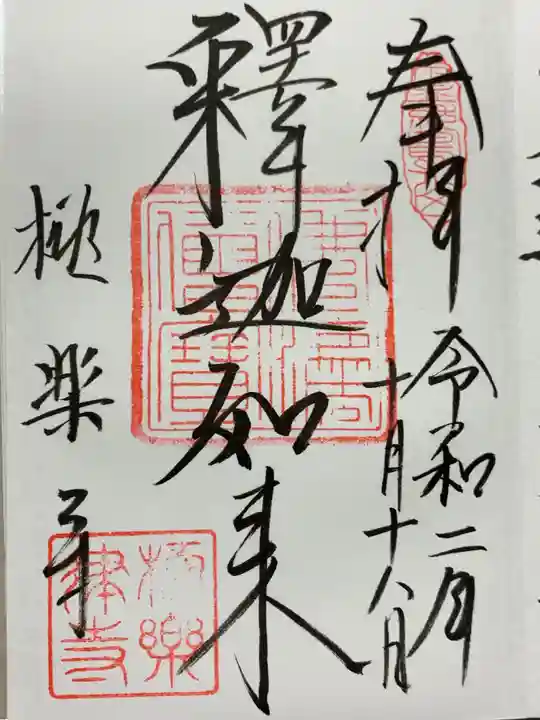 奉拝
令和二年
十月十八日
釋迦如来
極楽寺
極樂律寺